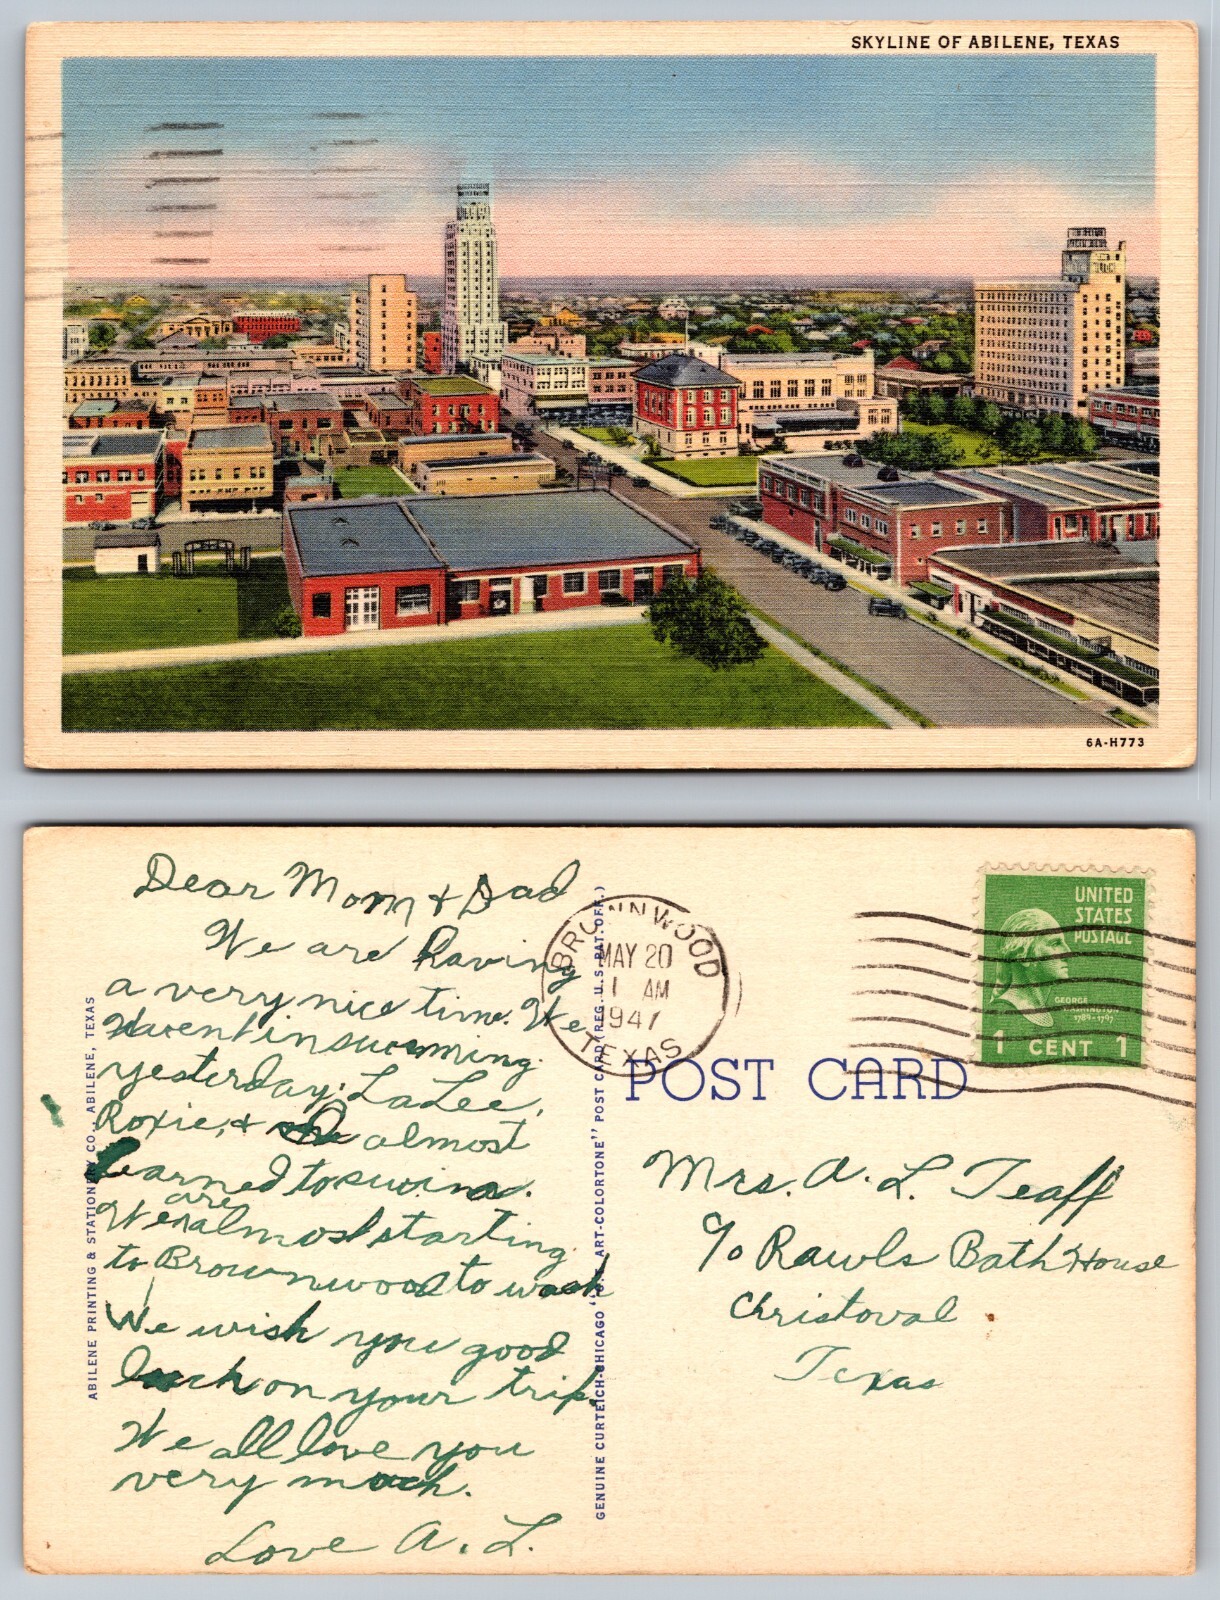 SKYLINE OF ABILENE, TEXAS
6A-H773
Dear Mom & Dad
We are having
a very nice time. We
went in swimming
yesterday. LaLee,
Roxie, & almost
learned to swim.
We are almost starting
to Brownwood to wash
We wish you good
luck on your trip.
We all love you
very much.
Love A. L.
ABILENE PRINTING & STATIONERY CO., ABILENE, TEXAS
GENUINE CURTEICH-CHICAGO "C.T. ART-COLORTONE" POST CARD (REG. U.S. PAT. OFF.)
BROWNWOOD
MAY 20
1 AM
1947
TEXAS
UNITED
STATES
POSTAGE
GEORGE
WASHINGTON
1789-1797
1 CENT 1
POST CARD
Mrs. A. L. Teaff
c/o Rawls Bath House
Christoval
Texas